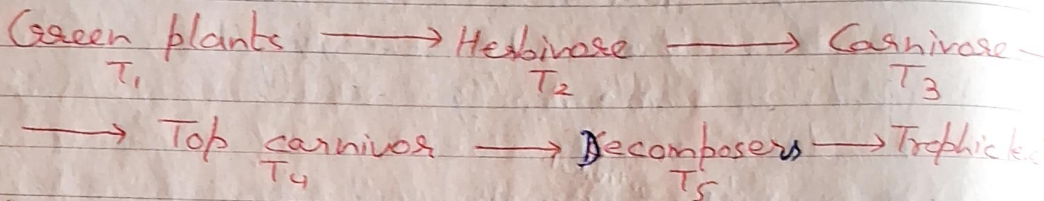 Green plants → Herbivore → Carnivore -
T1 T2 T3
→ Top carnivor → Decomposers → Trophic
T4 T5